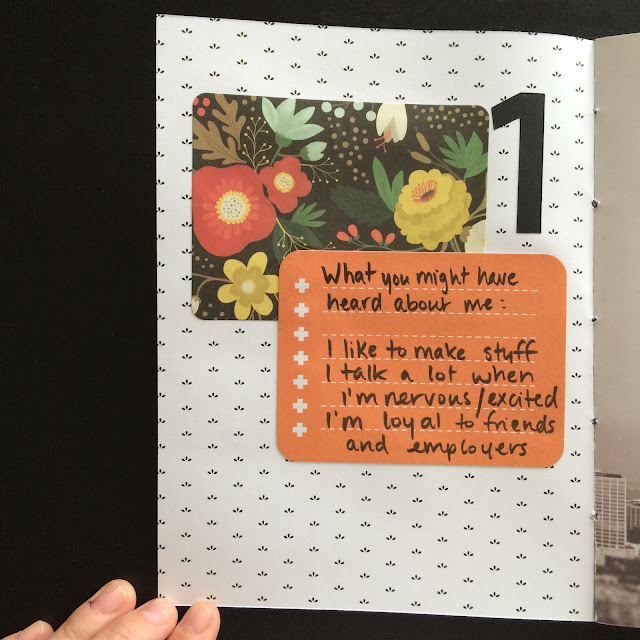 1
What you might have
heard about me:
I like to make stuff
I talk a lot when
I'm nervous/excited
I'm loyal to friends
and employers